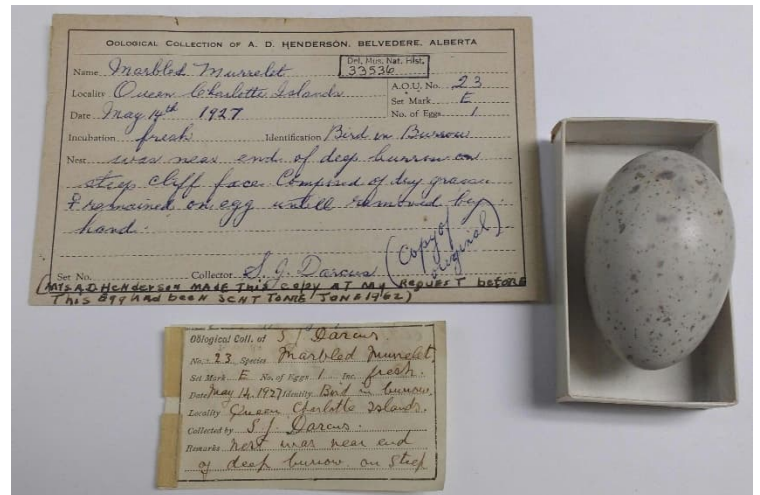 OOLOGICAL COLLECTION OF A. D. HENDERSON, BELVEDERE, ALBERTA
Name Marbled Murrelet
Del. Mus. Nat. Hist.
33536
Locality Queen Charlotte Islands
A.O.U. No. 23
Date May 14th 1927
Set Mark E
No. of Eggs 1
Incubation fresh Identification Bird in Burrow
Nest was near end of deep burrow on
steep cliff face. Composed of dry grasses
♀ remained on egg untill removed by
hand.
(Copy of original)
Set No. Collector S. J. Darcus
(Mrs A.D. Henderson made this copy at my request before
This egg had been sent to me June 1962)
Oölogical Coll. of S J Darcus
No. 23 Species Marbled Murrelet
Set Mark E No. of Eggs 1 Inc. fresh.
Date May 14, 1927 Identity Bird in burrow.
Locality Queen Charlotte Islands.
Collected by S J Darcus.
Remarks Nest was near end
of deep burrow on steep